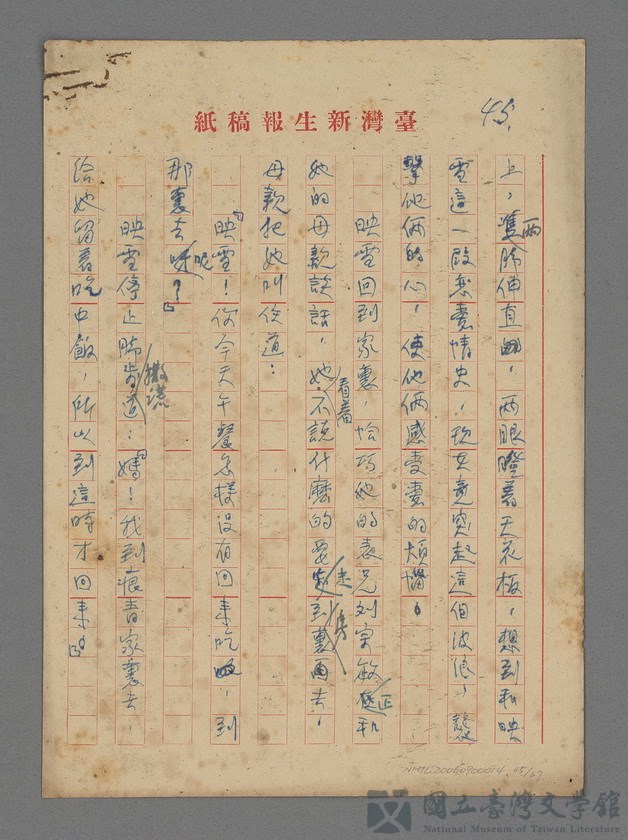 紙稿報生新灣臺
45.
上，兩隻腳伸直，兩眼瞪著天花板，想到和映
雪這一段恋愛情史，現在竟突起這個波浪，襲
擊他倆的心，使他倆感受愛的煩惱。
映雪回到家裏，恰巧她的表兄刘宗敏正和
她的母親談話，她看着不說什麼的要走到裏面去，
母親把她叫住道：
「映雪！你今天午餐怎樣沒有回来吃，到
那裏去呢？」
映雪停止腳步撒謊道：「媽！我到痕青家裏去，
給她留着吃中飯，所以到這時才回来。」
NMTL20060900014
國立臺灣文學館
National Museum of Taiwan Literature